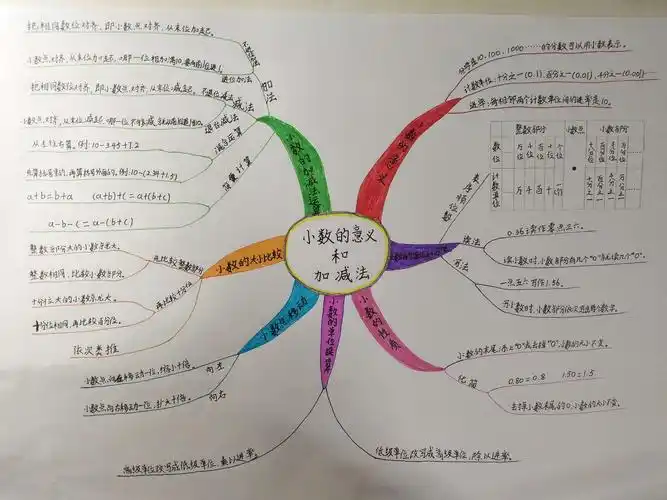 小数的意义
和
加减法
小数的意义
分母是10、100、1000……的分数可以用小数表示。
计数单位:十分之一(0.1)、百分之一(0.01)、千分之一(0.001)……
进率:每相邻两个计数单位间的进率是10。
数位顺序表
整数部分 小数点 小数部分
数位 …… 万位 千位 百位 十位 个位 · 十分位 百分位 千分位 万分位 ……
计数单位 …… 万 千 百 十 十分之一 百分之一 千分之一 万分之一 ……
读法
0.36读作零点三六。
读小数时,小数部分有几个"0"就读几个"0"。
写法
一点五六写作1.56。
写小数时,小数部分依次写出每个数字。
小数的性质
小数的末尾添上"0"或去掉"0",小数的大小不变。
化简
0.80=0.8 1.50=1.5
去掉小数末尾的0,小数的大小不变。
小数的单位换算
低级单位改写成高级单位,除以进率。
高级单位改写成低级单位,乘以进率。
小数点移动
向左
小数点向左移动一位,缩小十倍。
向右
小数点向右移动一位,扩大十倍。
小数的大小比较
先比较整数部分
整数部分大的小数就大。
整数相同,比较小数部分。
再比较十分位
十分位大的小数就大。
十分位相同,再比较百分位。
依次类推
小数的加减法运算
加法
不进位加法
把相同数位对齐,即小数点对齐,从末位加起。
进位加法
小数点对齐,从末位加起,哪一位相加满10,要向前一位进1。
减法
不退位减法
把相同数位对齐,即小数点对齐,从末位减起。
退位减法
小数点对齐,从末位减起,哪一位不够减,
混合运算
例:10-3.45+1.2
例:10-(2.34+1.5)
简便计算
a+b=b+a (a+b)+c=a+(b+c)
a-b-c=a-(b+c)